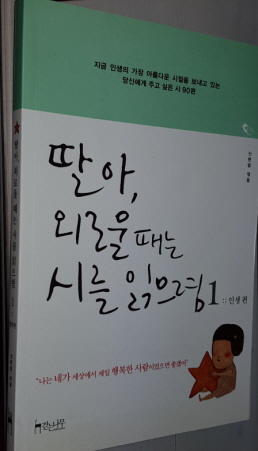 지금 인생의 가장 아름다운 시절을 보내고 있는
당신에게 주고 싶은 시 90편
신현림 엮음
딸아,
외로울 때는
시를 읽으렴 1 :: 인생 편
"나는 네가 세상에서 제일 행복한 사람이었으면 좋겠어"
걷는나무
딸아, 외로울 때는 시를 읽으렴 1